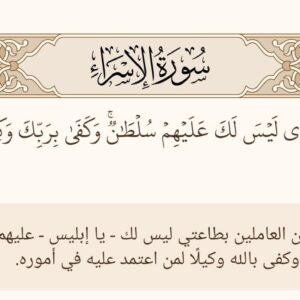 سُورَةُ الإِسْرَاءِ
لَيْسَ لَكَ عَلَيْهِمْ سُلْطَٰنٌۭ ۚ وَكَفَىٰ بِرَبِّكَ
العاملين بطاعتي ليس لك - يا إبليس - عليهم
وكفى بالله وكيلًا لمن اعتمد عليه في أموره.